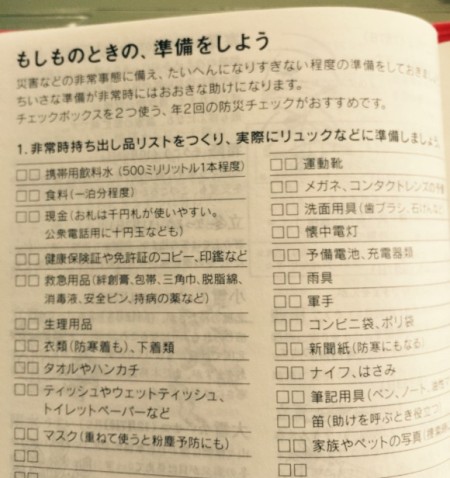 もしものときの、準備をしよう
災害などの非常事態に備え、たいへんになりすぎない程度の準備をしておき
ちいさな準備が非常時にはおおきな助けになります。
チェックボックスを2つ使う、年2回の防災チェックがおすすめです。
1. 非常時持ち出し品リストをつくり、実際にリュックなどに準備しましょう。
□□ 携帯用飲料水(500ミリリットル1本程度)
□□ 食料(一泊分程度)
□□ 現金(お札は千円札が使いやすい。
公衆電話用に十円玉なども)
□□ 健康保険証や免許証のコピー、印鑑など
□□ 救急用品(絆創膏、包帯、三角巾、脱脂綿、
消毒液、安全ピン、持病の薬など)
□□ 生理用品
□□ 衣類(防寒着も)、下着類
□□ タオルやハンカチ
□□ ティッシュやウェットティッシュ、
トイレットペーパーなど
□□ マスク(重ねて使うと粉塵予防にも)
□□
□□
□□ 運動靴
□□ メガネ、コンタクトレンズの
□□ 洗面用具(歯ブラシ、石けん
□□ 懐中電灯
□□ 予備電池、充電器類
□□ 雨具
□□ 軍手
□□ コンビニ袋、ポリ袋
□□ 新聞紙(防寒にもなる)
□□ ナイフ、はさみ
□□ 筆記用具(ペン、ノート、
□□ 笛(助けを呼ぶとき役立つ)
□□ 家族やペットの写真(
□□